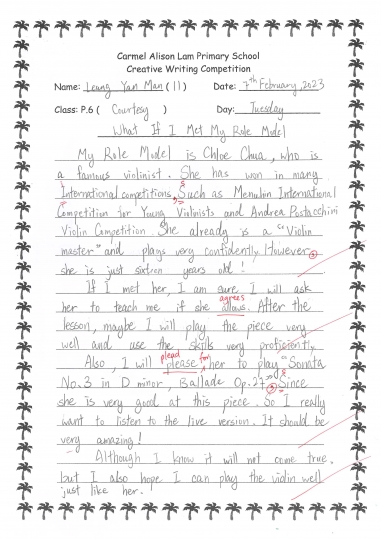 Carmel Alison Lam Primary School
Creative Writing Competition
Name: Leung Yan Man (11) Date: 7th February, 2023
Class: P.6 ( Courtesy ) Day: Tuesday
What If I Met My Role Model
My Role Model is Chloe Chua, who is
a famous violinist. She has won in many
International competitions. Such as Menuhin International
Competition for Young Violinists and Andrea Postacchini
Violin Competition. She already is a "Violin
master" and plays very confidently. However,
she is just sixteen years old!
If I met her, I am sure I will ask
agrees
her to teach me if she allows. After the
lesson, maybe I will play the piece very
well and use the skills very proficiently.
plead for
Also, I will please her to play "Sonata
No.3 in D minor, Ballade Op.27". Since
she is very good at this piece. So I really
want to listen to the live version. It should be
very amazing!
Although I know it will not come true,
but I also hope I can play the violin well
just like her.